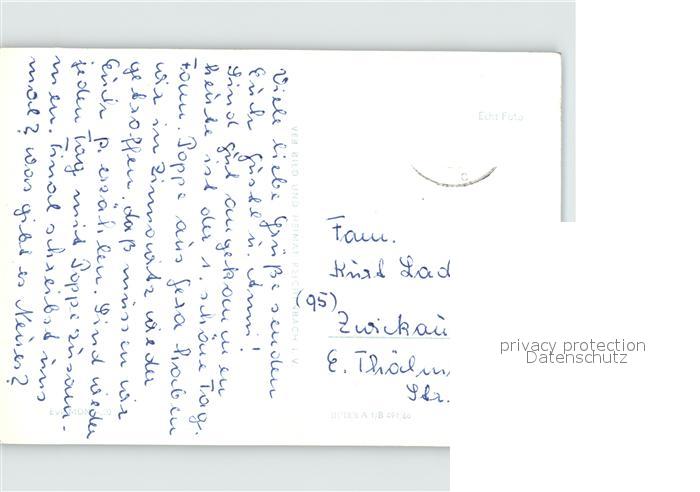 Viele liebe Grüße senden
Euch Gustl u. Anni!
Sind gut angekommen
heute ist der 1. schöne Tag.
Fam. Poppe aus Gera haben
wir in Zinnowitz wieder
getroffen, daß müssen wir
Euch p. erzählen. Sind wieder
jeden Tag mit Poppe zusam-
men. Einmal schreibst uns
mal? was gibt es Neues?
VEB BILD UND HEIMAT REICHENBACH I. V.
Echt Foto
Fam.
Kurt Lad
(95)
Zwickau
E. Thälm
Str.
privacy protection
Datenschutz